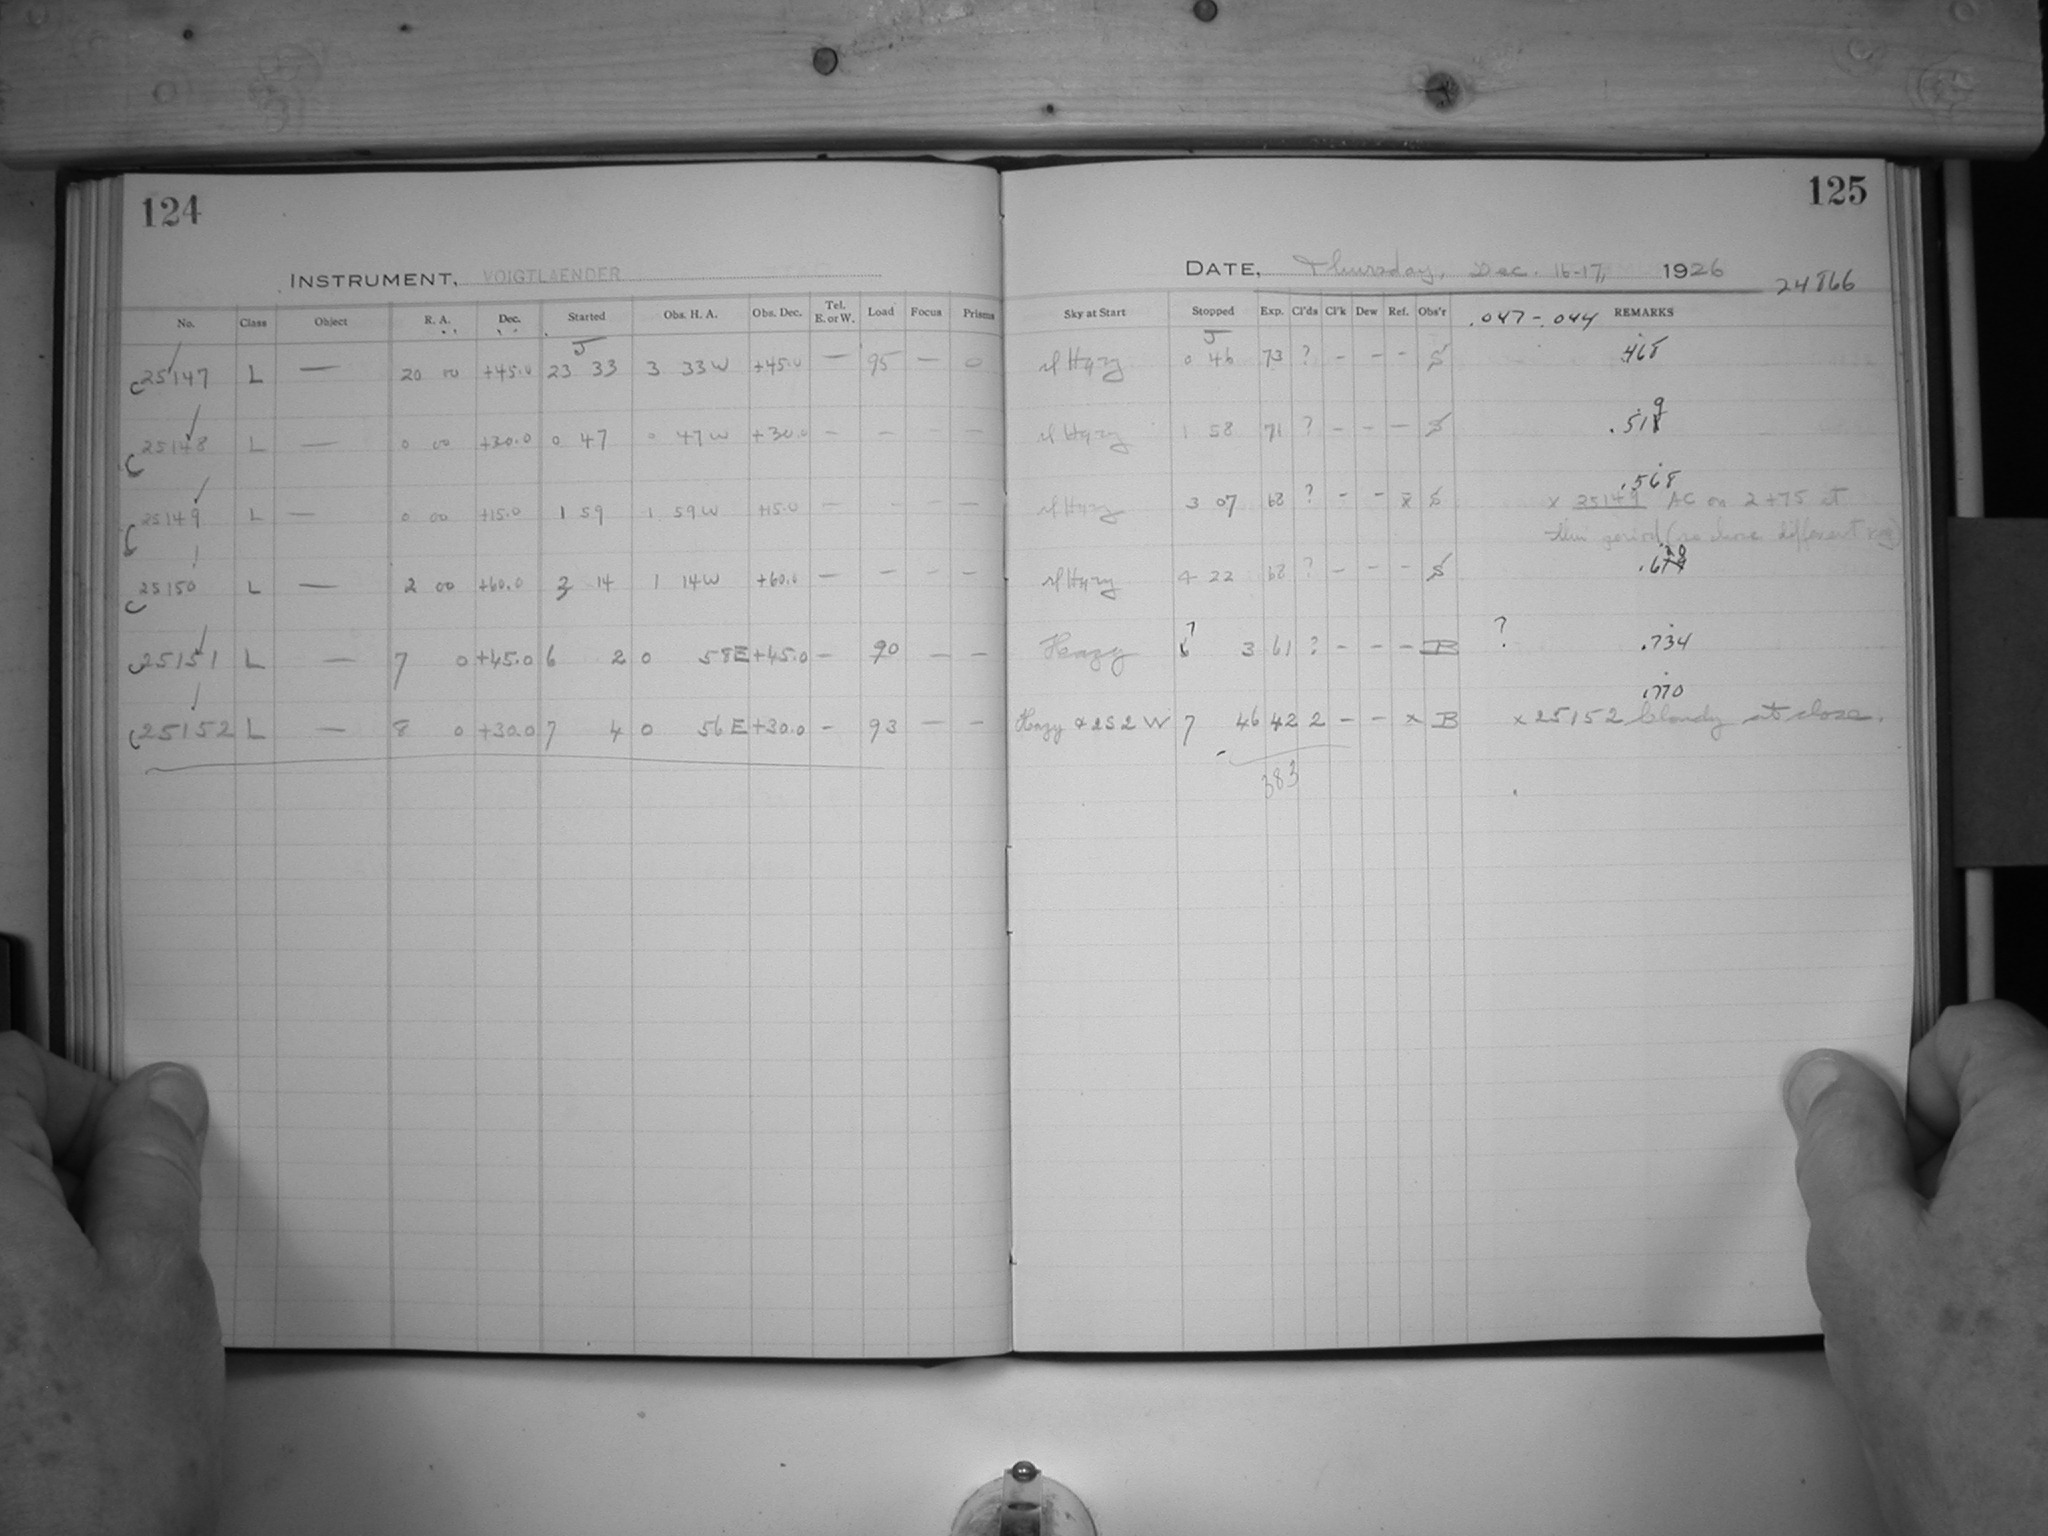 124
INSTRUMENT, VOIGTLAENDER
No. Class Object R. A. Dec. Started Obs. H. A. Obs. Dec. Tel. E. or W. Load Focus Prisms
C 25147 L — 20 00 +45.0 23 33 3 33W +45.0 — 95 — 0
C 25148 L — 0 00 +30.0 0 47 0 47W +30.0 — — — —
C 25149 L — 0 00 +15.0 1 59 1 59W +15.0 — — — —
C 25150 L — 2 00 +60.0 3 14 1 14W +60.0 — — — —
C 25151 L — 7 0 +45.0 6 2 0 58E +45.0 — 90 — —
C 25152 L — 8 0 +30.0 7 4 0 56E +30.0 - 93 — —
125
DATE, Thursday, Dec. 16-17, 1926
24866
Sky at Start Stopped Exp. Cl'ds Cl'k Dew Ref. Obs'r .047-.044 REMARKS
sl Hazy 0 46 73 ? - - - S .468
sl Hazy 1 58 71 ? - - - S .519
.568
sl Hazy 3 07 68 ? - - x S x 25149 AC on 2 +75 at
this period (so chose different reg)
sl Hazy 4 22 68 ? - - - S
Hazy 7 3 61 ? - - - B ? .734
.770
Hazy + 2S2W 7 46 42 2 - - x B x 25152 Cloudy at close.
383